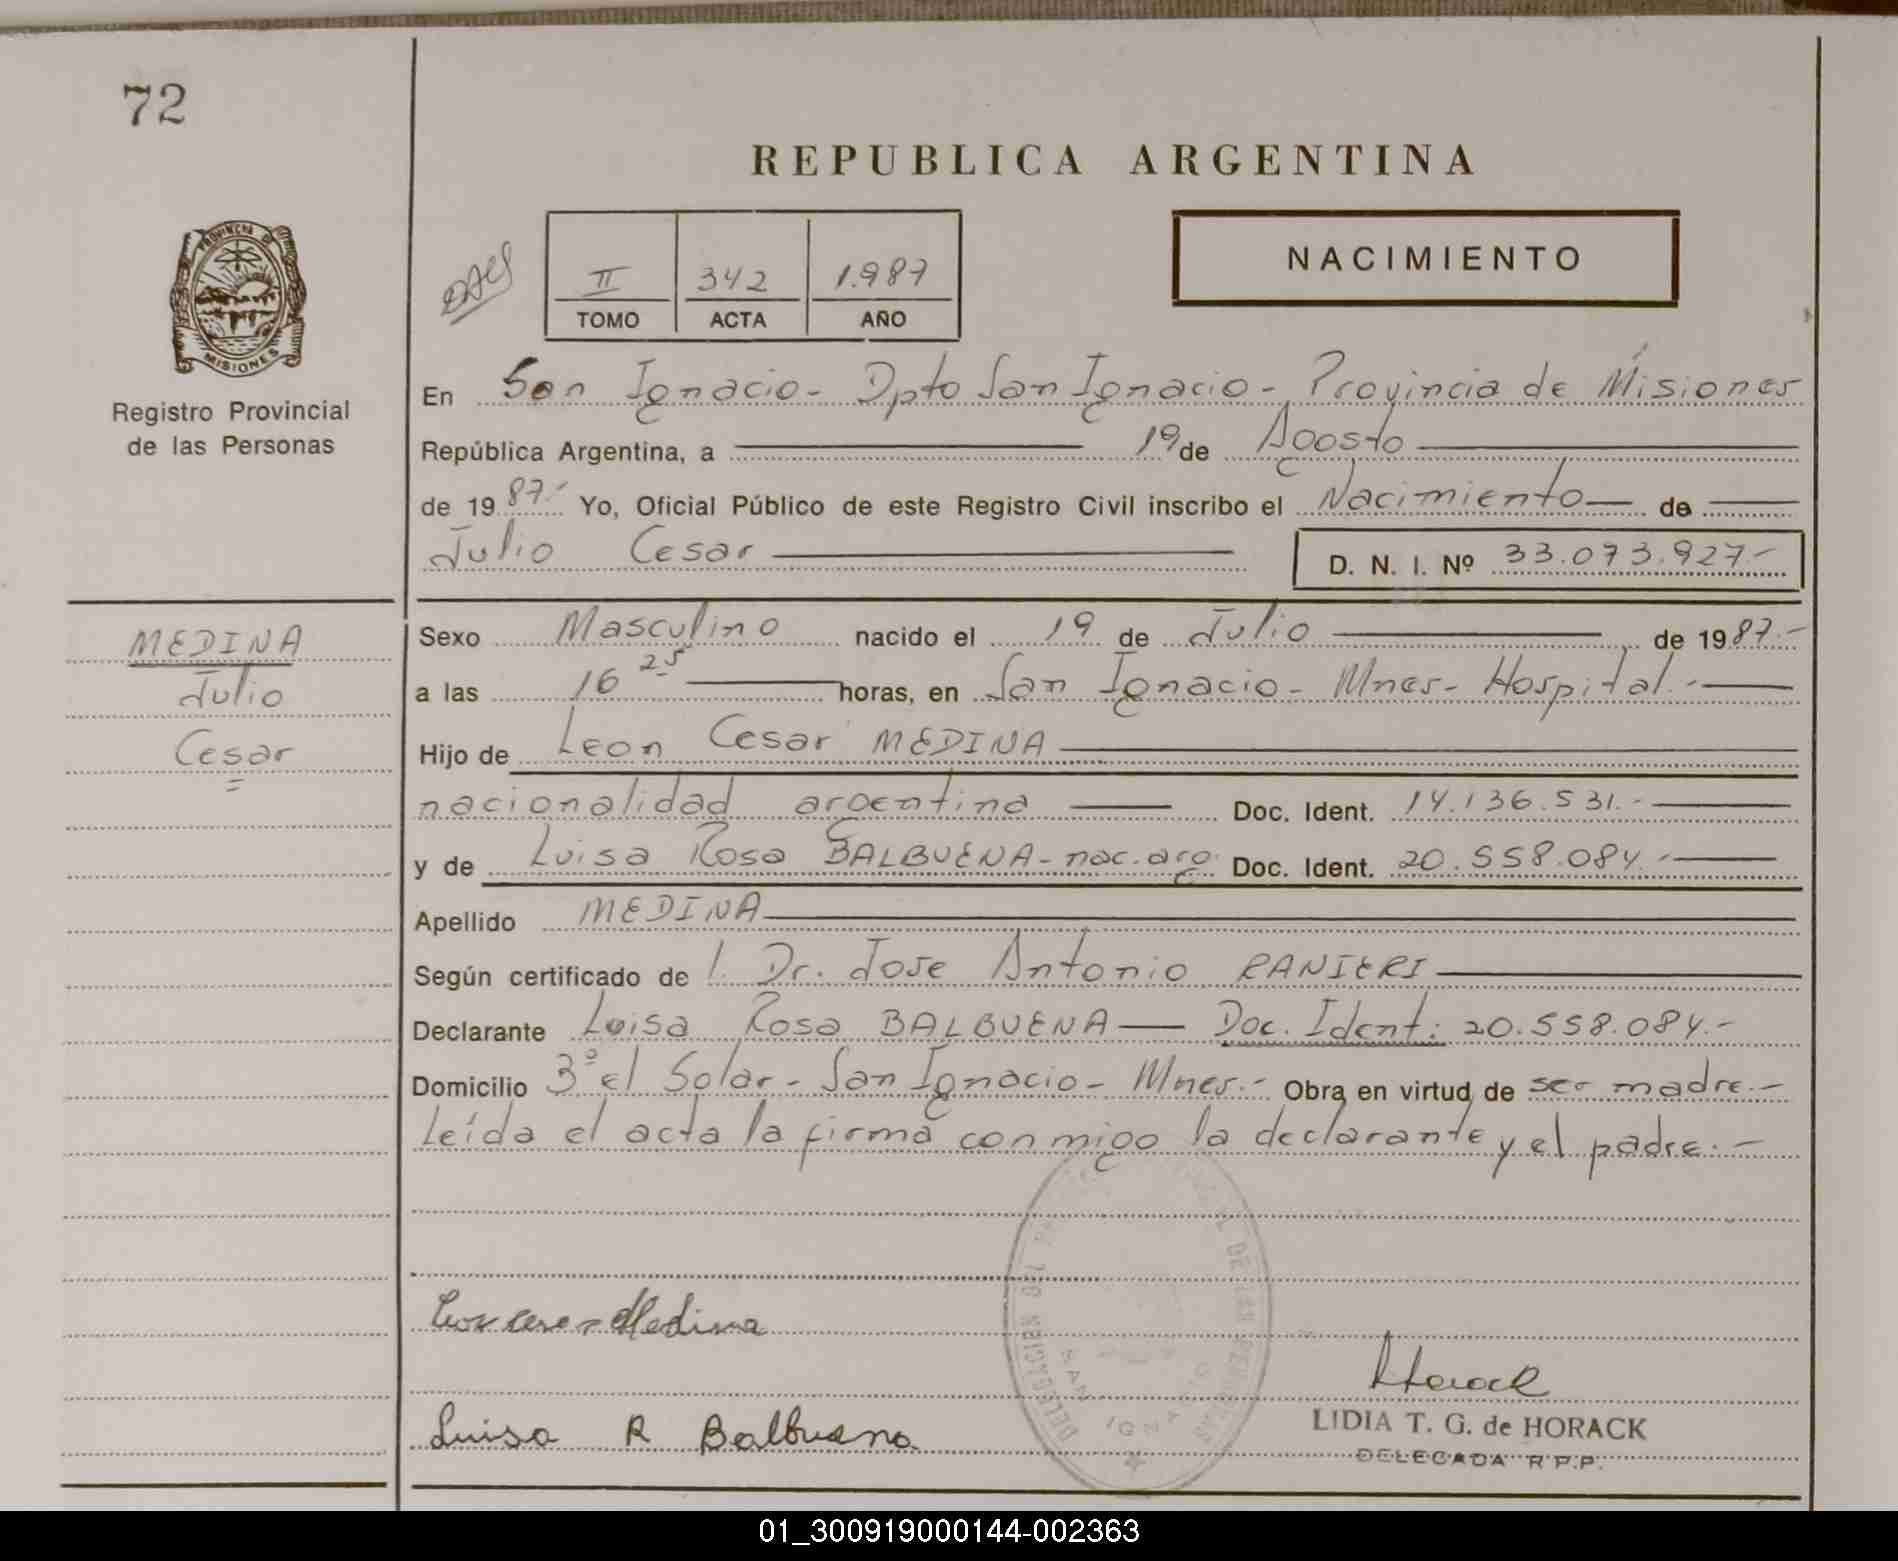 72
REPUBLICA ARGENTINA
PROVINCIA DE
MISIONES
Registro Provincial
de las Personas
II 342 1.987
TOMO ACTA AÑO
NACIMIENTO
En San Ignacio - Dpto San Ignacio - Provincia de Misiones
República Argentina, a 19 de Agosto
de 1987.- Yo, Oficial Público de este Registro Civil inscribo el Nacimiento de
Julio Cesar D. N. I. Nº 33.073.927-
MEDINA
Julio
Cesar
Sexo Masculino nacido el 19 de Julio de 1987.-
a las 16 25 horas, en San Ignacio - Mnes - Hospital.-
Hijo de Leon Cesar MEDINA
nacionalidad argentina Doc. Ident. 14.136.531.-
y de Luisa Rosa BALBUENA - nac. arg. Doc. Ident. 20.558.084.-
Apellido MEDINA
Según certificado de l. Dr. Jose Antonio RANIERI
Declarante Luisa Rosa BALBUENA — Doc. Ident: 20.558.084.-
Domicilio 3º el Solar - San Ignacio - Mnes.- Obra en virtud de ser madre.-
Leída el acta la firma conmigo la declarante y el padre.-
Leon Cesar Medina
Horack
LIDIA T. G. de HORACK
DELEGADA R.P.P.
Luisa R Balbuena
01_300919000144-002363